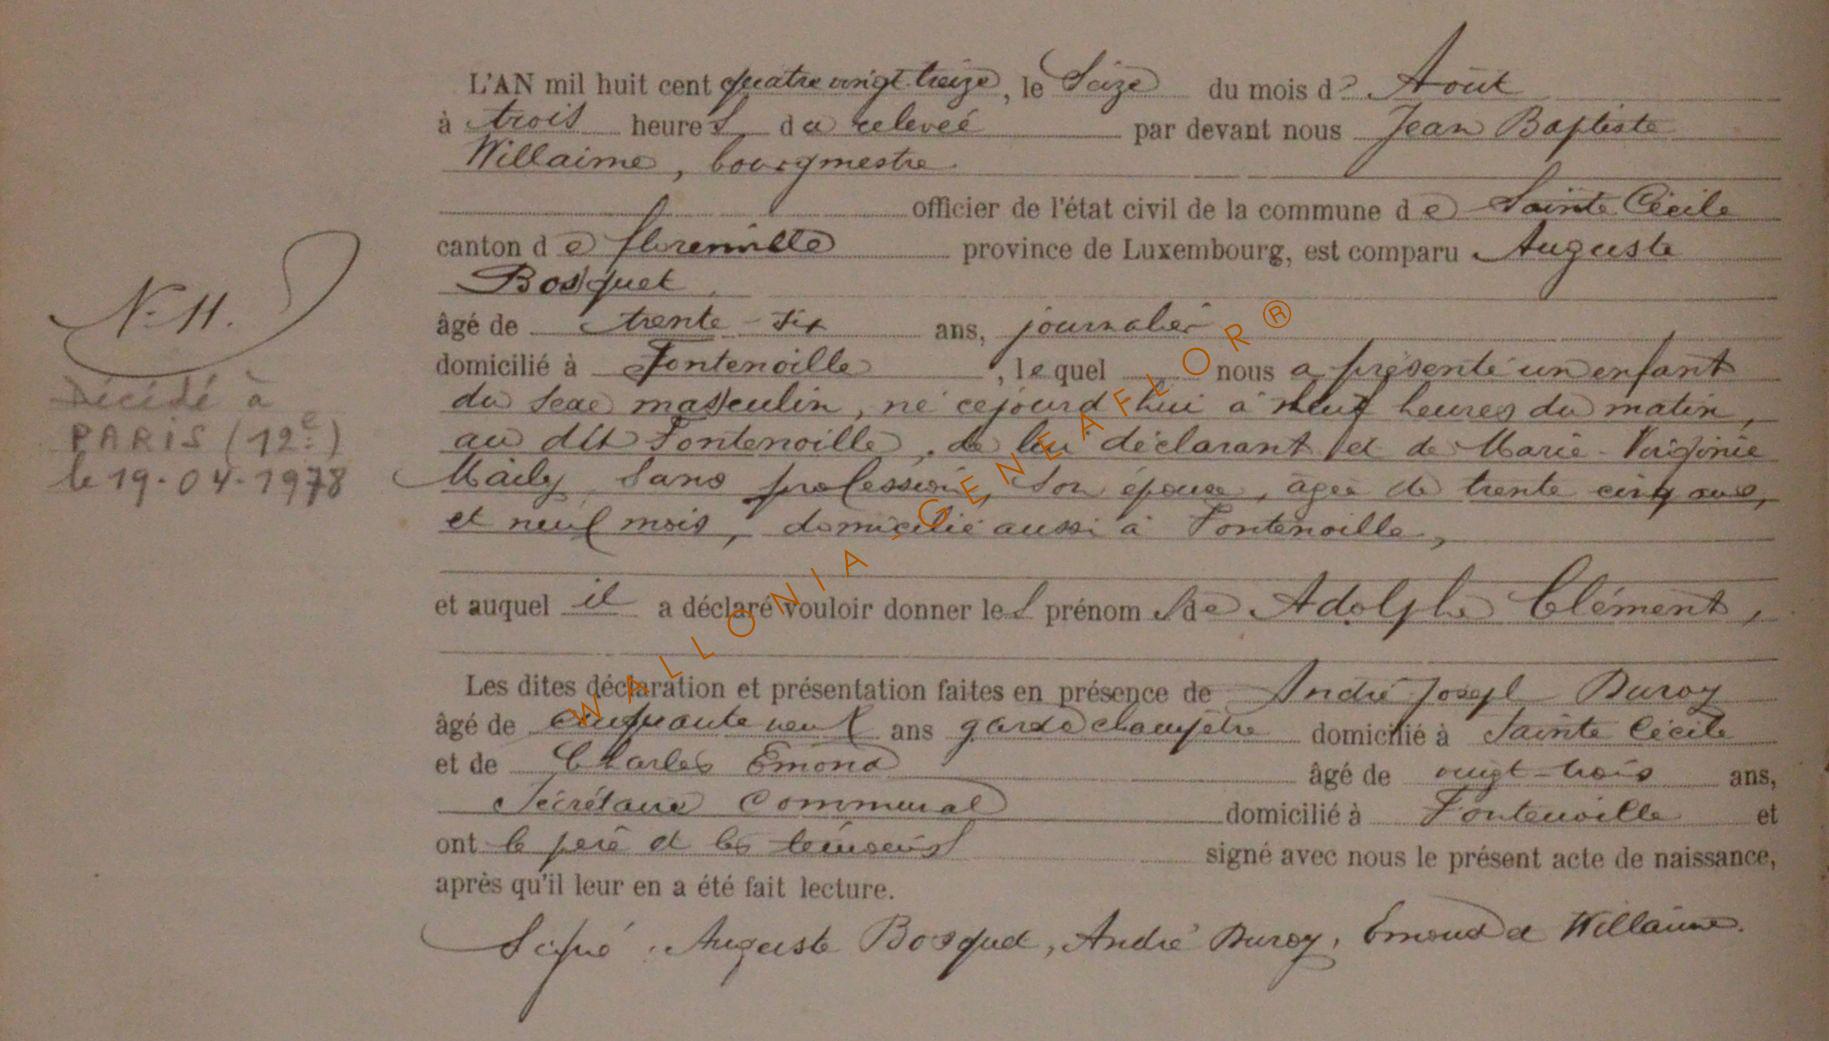 L'AN mil huit cent quatre vingt treize, le Seize du mois d' Août
à trois heures de releveé par devant nous Jean Baptiste
Willaime, bourgmestre
officier de l'état civil de la commune de Sainte Cécile
canton de florenville province de Luxembourg, est comparu Auguste
Bosquet
âgé de trente-six ans, journalier
domicilié à Fontenoille, lequel nous a présenté un enfant
du sexe masculin, né cejourd'hui à neuf heures du matin,
au dit Fontenoille, de lui déclarant et de Marie-Virginie
Maily, sans profession, son épouse, âgée de trente cinq ans,
et neuf mois, domicilié aussi à Fontenoille,
et auquel il a déclaré vouloir donner les prénoms de Adolphe Clément,
Les dites déclaration et présentation faites en présence de André Joseph Duroy
âgé de cinquante neuf ans garde champêtre domicilié à Sainte Cécile
et de Charles Emond âgé de vingt-trois ans,
Sécrétaire Communal domicilié à Fontenoille et
ont le père et les témoins signé avec nous le présent acte de naissance,
après qu'il leur en a été fait lecture.
Signé : Auguste Bosquet, André Duroy, Emond et Willaime.
N° 11.
Décédé à
PARIS (12e)
le 19-04-1978
WALLONIA - GENEAFLOR®